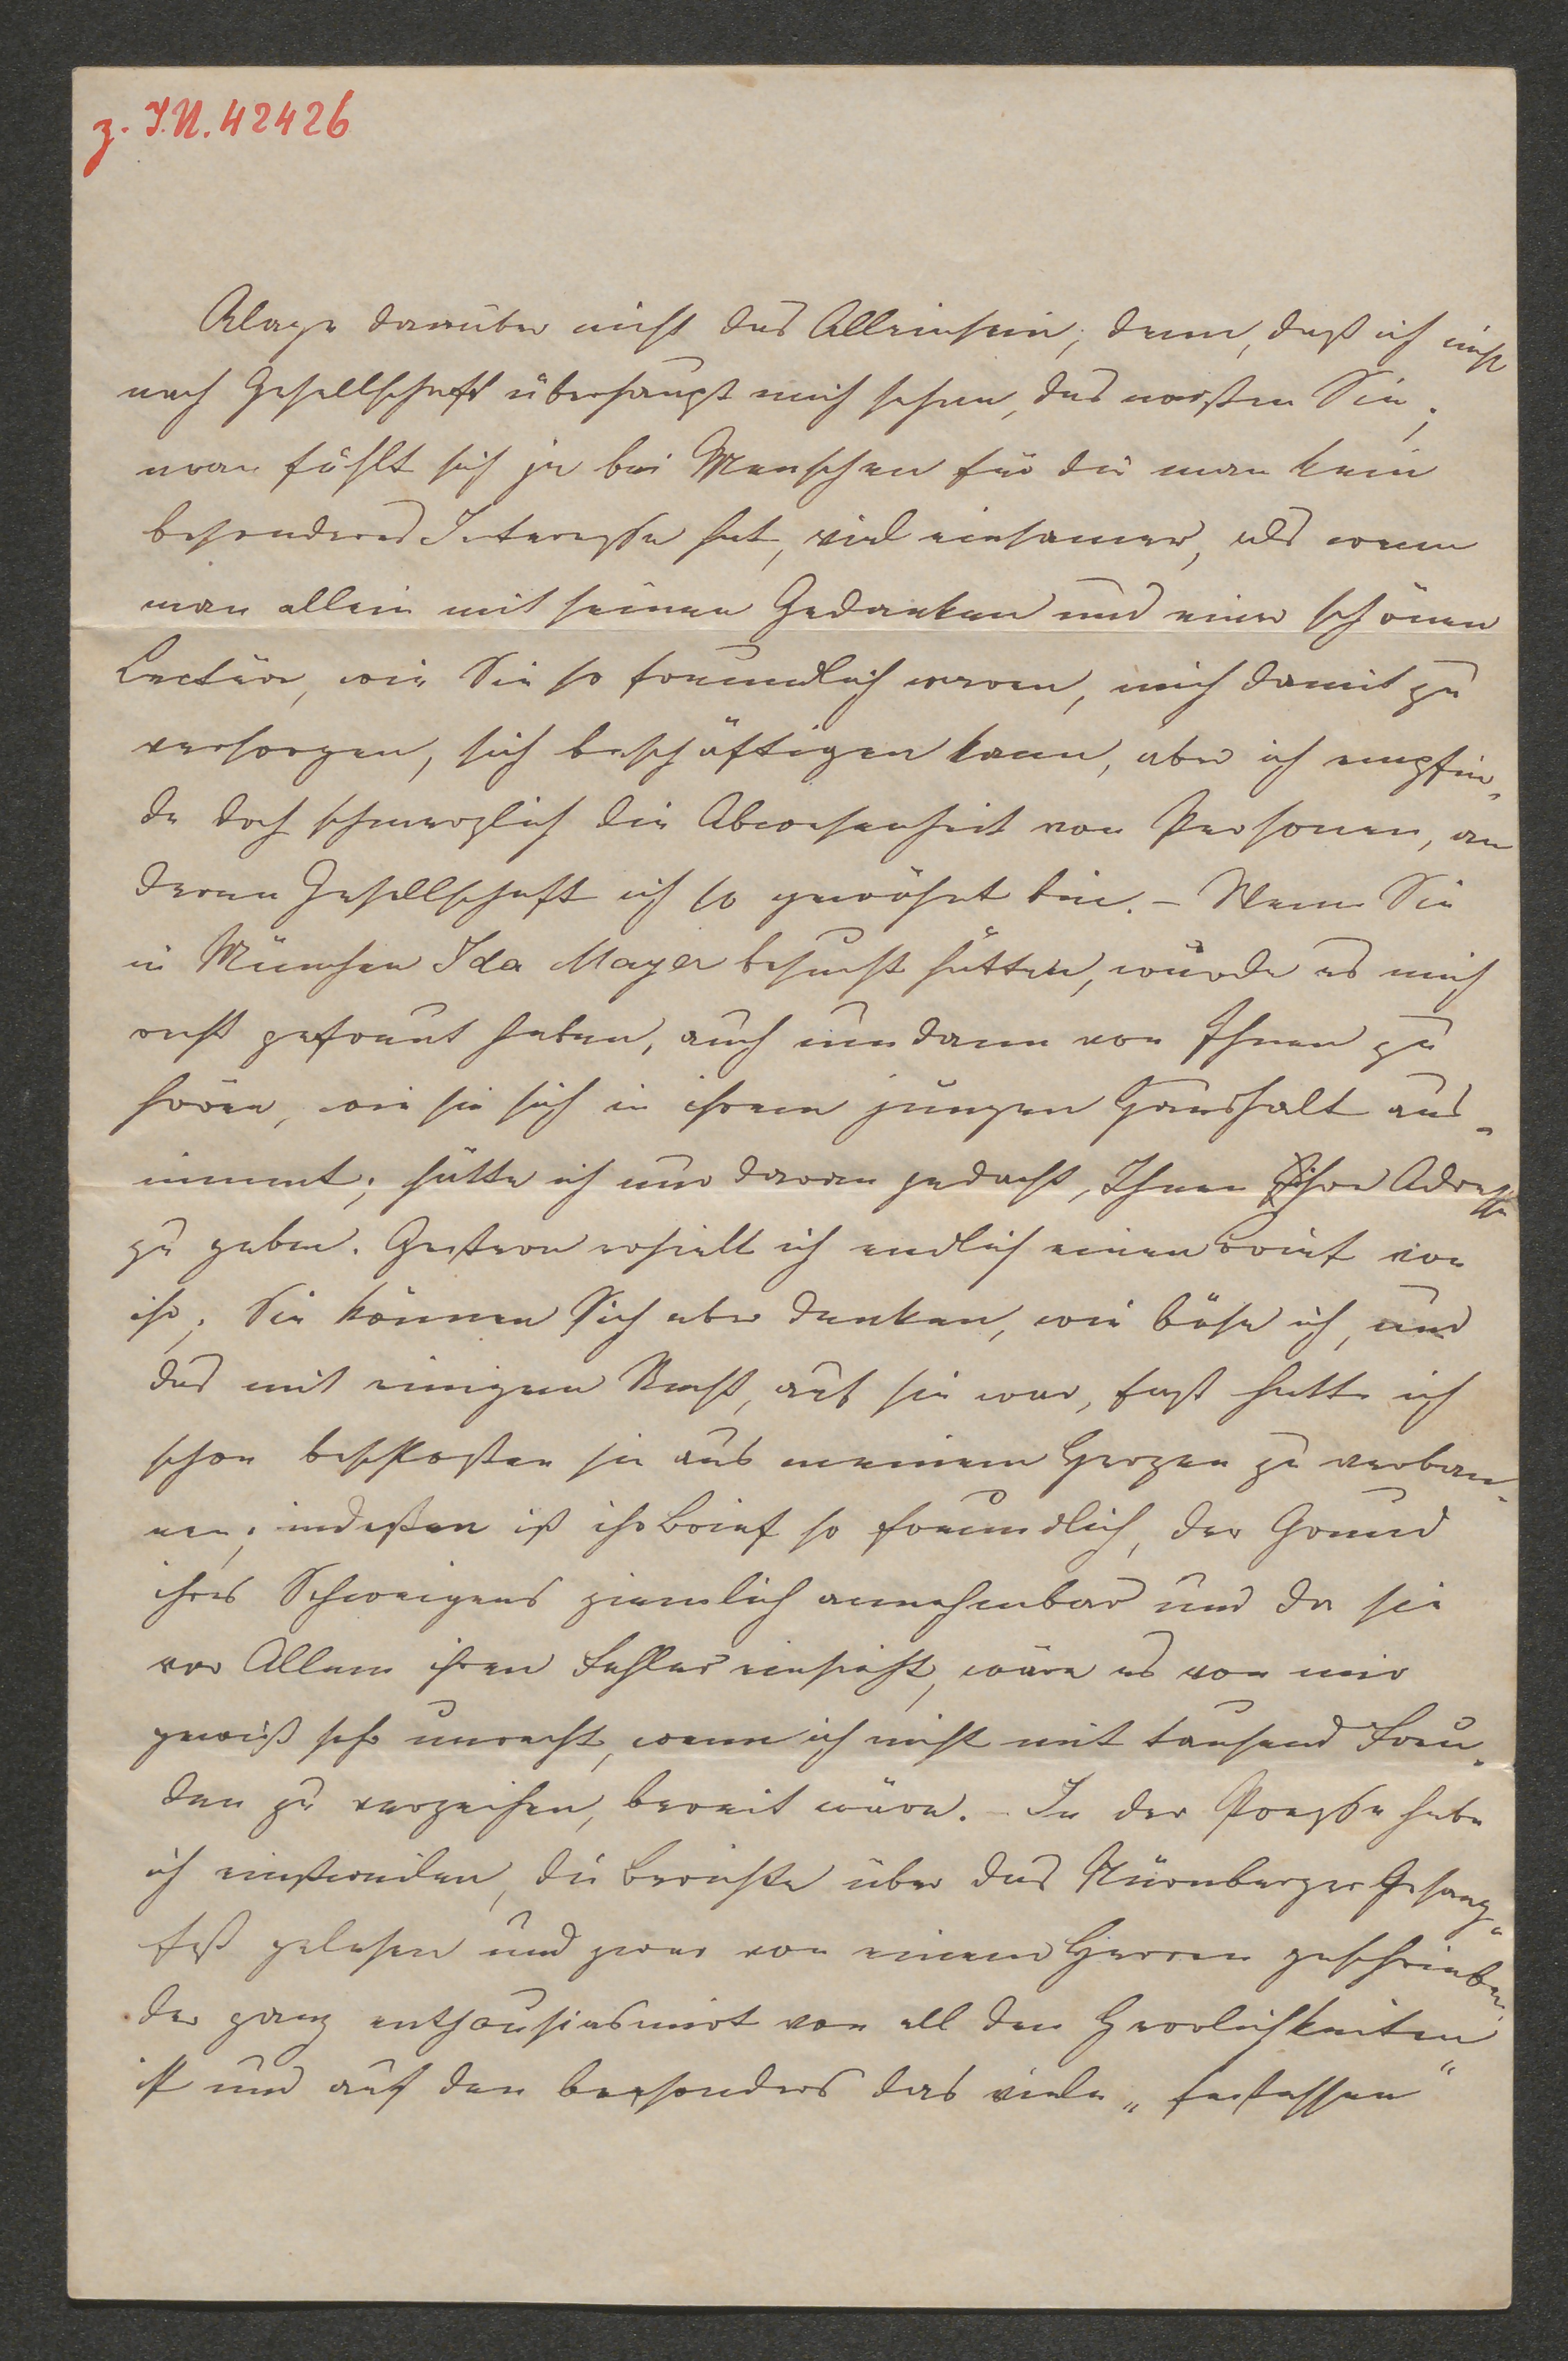 z. I.N. 42426
Klage darüber nicht das Alleinsein, denn, daß ich nicht
nach Gesellschaft überhaupt mich sehne, das wißen Sie,
man fühlt sich ja bei Menschen für die man kein
besonderes Interesse hat, viel einsamer, als wenn
man allein mit seinen Gedanken und einer schönen
Lectüre, wie Sie so freundlich waren, mich damit zu
versorgen, sich beschäftigen kann, aber ich empfin-
de doch schmerzlich die Abwesenheit von Personen, an
deren Gesellschaft ich so gewöhnt bin. – Wenn Sie
in München Ida Mayer besucht hätten, würde es mich
recht gefreut haben, auch um dann von Ihnen zu
hören, wie sie sich in ihrem jungen Haushalt aus-
nimmt; hätte ich nur daran gedacht, Ihnen ihre Adresse
zu geben. Gestern erhielt ich endlich einen Brief von
ihr, Sie können Sich aber denken, wie böse ich, und
das mit einigem Recht, auf sie war, fast hatte ich
schon beschloßen sie aus meinem Herzen zu verban-
nen; indeßen ist ihr Brief so freundlich, der Grund
ihres Schweigens ziemlich annehmbar und da sie
vor Allem ihren Fehler einsieht, wäre es von mir
gewiß sehr unrecht, wenn ich nicht mit tausend Freu-
den zu verzeihen, bereit wäre. – In der Presse habe
ich einstweilen, die Berichte über das Nürnberger Gesang-
fest gelesen und zwar von einem Herren geschrieben
der ganz enthousiasmirt von all den Herrlichkeiten
ist und auf den besonders das viele „festessen“